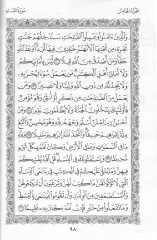 الجزء الخامس سورة النساء
والذين ءامنوا وعملوا الصلحت سندخلهم جنت
تجرى من تحتها الأنهر خلدين فيها أبدا وعد الله
حقا ومن أصدق من الله قيلا ١٢٢ ليس بأمانيكم
ولا أمانى أهل الكتب من يعمل سوءا يجز به
ولا يجد له من دون الله وليا ولا نصيرا ١٢٣ ومن
يعمل من الصلحت من ذكر أو أنثى وهو مؤمن
فأولئك يدخلون الجنة ولا يظلمون نقيرا ١٢٤
ومن أحسن دينا ممن أسلم وجهه لله وهو محسن واتبع
ملة إبرهيم حنيفا واتخذ الله إبرهيم خليلا ١٢٥ ولله
ما فى السموت وما فى الأرض وكان الله بكل شىء
محيطا ١٢٦ ويستفتونك فى النساء قل الله يفتيكم
فيهن وما يتلى عليكم فى الكتب فى يتمى النساء
التى لا تؤتونهن ما كتب لهن وترغبون أن تنكحوهن
والمستضعفين من الولدن وأن تقوموا لليتمى بالقسط
وما تفعلوا من خير فإن الله كان به عليما ١٢٧
٩٨